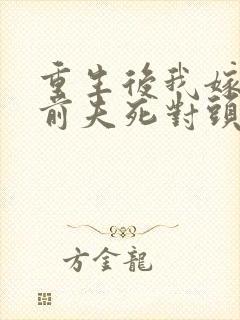 重生後我嫁
前夫死對頭
方金龍